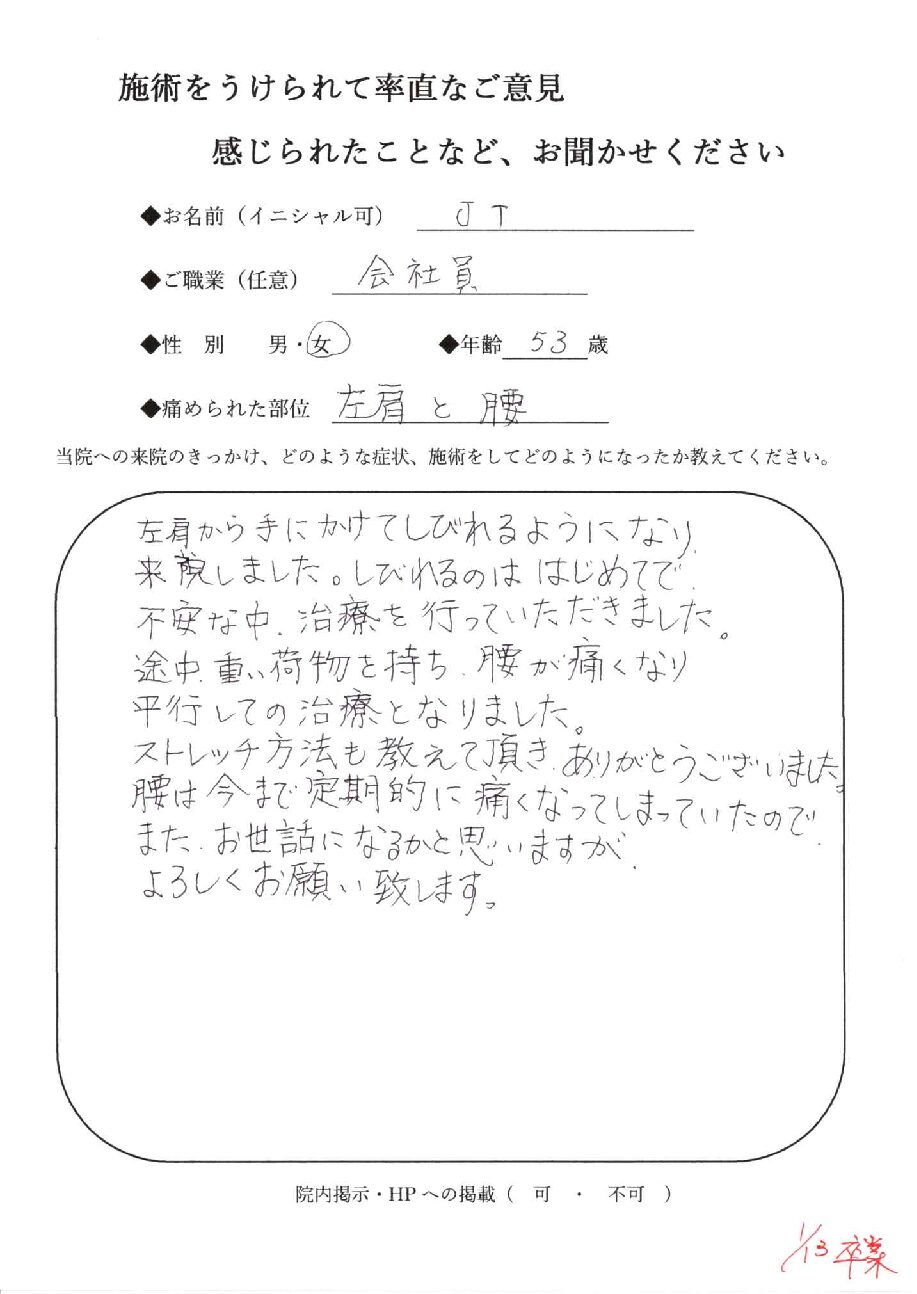 施術をうけられて率直なご意見
感じられたことなど、お聞かせください
◆お名前（イニシャル可） JT
◆ご職業（任意） 会社員
◆性 別 男・女 ◆年齢 53 歳
◆痛められた部位 左肩と腰
当院への来院のきっかけ、どのような症状、施術をしてどのようになったか教えてください。
左肩から手にかけてしびれるようになり、
来院しました。しびれるのははじめてで、
不安な中、治療を行っていただきました。
途中、重い荷物を持ち、腰が痛くなり
平行しての治療となりました。
ストレッチ方法も教えて頂き、ありがとうございました。
腰は今まで定期的に痛くなってしまっていたので、
また、お世話になるかと思いますが、
よろしくお願い致します。
院内掲示・HPへの掲載（ 可 ・ 不可 ）
1/13 卒業